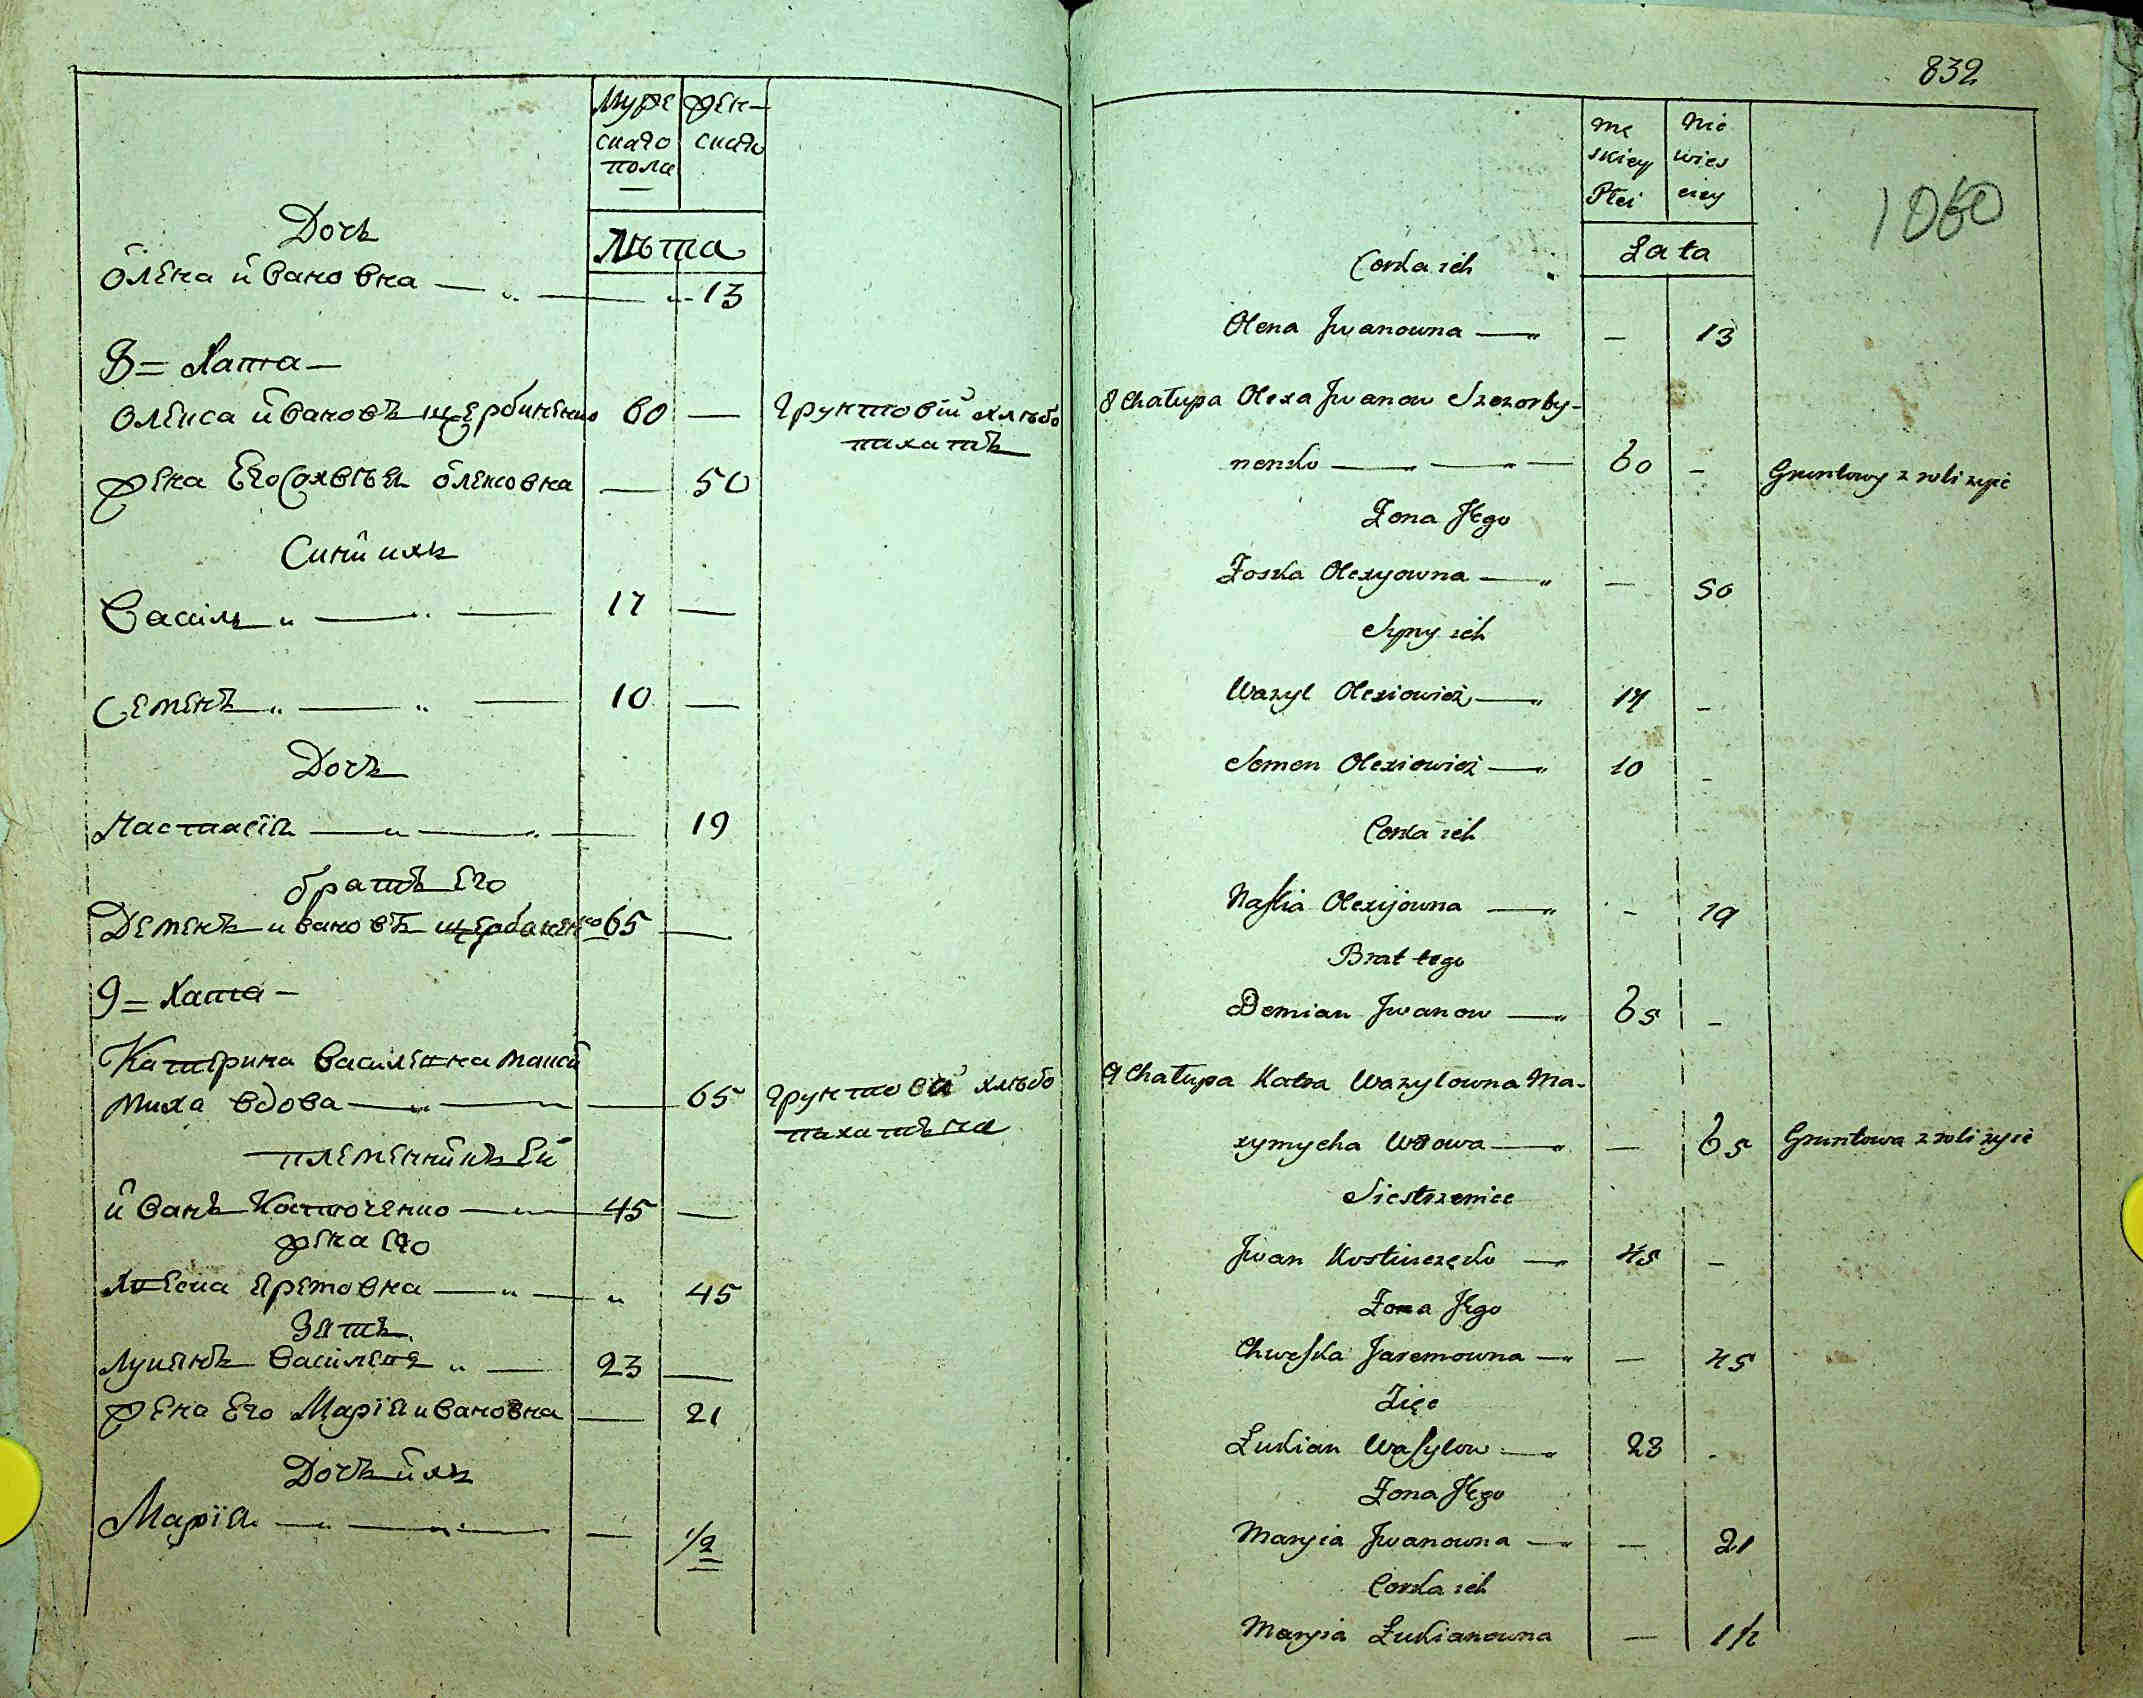 Муже
скаго
пола
жен-
скаго
Лѣта
Дочь
Олена Ивановна — 13
8 = Хата —
Олеκса Ивановъ Щербиненко 60 — Грунтовій хлѣбо
пахатъ
жена Его Солвѣя Олексовна — 50
Сини ихъ
Василь — 17 —
Семенъ — 10 —
Дочь
Настасія — 19
братъ Его
Деменъ Ивановъ Щербаненко 65 —
9 = Хата —
Катерина Василевна Макси
миха вдова — 65 Грунтова хлѣбо
пахатъна
племенникъ Ей
Иванъ Костюченко — 45 —
жена Его
Яремовна — 45
Зять
Лукянъ Василевъ 23 —
жена Его Марія Ивановна — 21
Дочь ихъ
Марія — 1/2
832
1060
Mę
skiey
Płci
Nie
wies
ciey
Lata
Corka ich
Olena Jwanowna — - 13
8 Chałupa Olexa Jwanow Szczerby-
nenko — 60 - Gruntowy z roli żyie
Żona Jego
Zoska Olexyowna — - 50
Syny ich
Wazyl Olexiowicz — 17 -
Semen Olexiowicz — 10 -
Corka ich
Naścia Olexijowna — - 19
Brat tego
Demian Jwanow — 65 -
9 Chałupa Katra Wazylowna Ma-
xymycha Wdowa — - 65 Gruntowa z roli żyie
Siestrzeniec
Jwan Kostiuczęko — 45 -
Żona Jego
Chweska Jaremowna — - 45
Zięc
Łukian Wasylow — 23 -
Żona Jego
Maryia Jwanowna — - 21
Corka ich
Maryia Łukianowna — 1/2